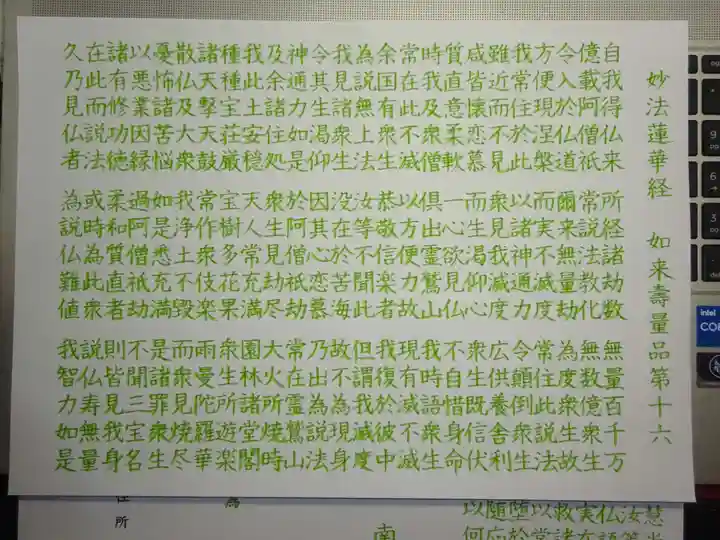 妙法蓮華経 如来壽量品第十六
自我得仏来 所経諸劫数 無量百千万
億載阿僧祇 常説法教化 無数億衆生
令入於仏道 爾来無量劫 為度衆生故
方便現涅槃 而実不滅度 常住此説法
我常住於此 以諸神通力 令顛倒衆生
雖近而不見 衆見我滅度 広供養舎利
咸皆懐恋慕 而生渇仰心 衆生既信伏
質直意柔軟 一心欲見仏 不自惜身命
時我及衆僧 俱出霊鷲山 我時語衆生
常在此不滅 以方便力故 現有滅不滅
余国有衆生 恭敬信楽者 我復於彼中
為説無上法 汝等不聞此 但謂我滅度
我見諸衆生 没在於苦海 故不為現身
令其生渇仰 因其心恋慕 乃出為説法
神通力如是 於阿僧祇劫 常在霊鷲山
及余諸住処 衆生見劫尽 大火所焼時
我此土安穏 天人常充満 園林諸堂閣
種種宝荘厳 宝樹多花果 衆生所遊楽
諸天撃天鼓 常作衆伎楽 雨曼陀羅華
散仏及大衆 我浄土不毀 而衆見焼尽
憂怖諸苦悩 如是悉充満 是諸罪衆生
以悪業因縁 過阿僧祇劫 不聞三宝名
諸有修功徳 柔和質直者 則皆見我身
在此而説法 或時為此衆 説仏寿無量
久乃見仏者 為説仏難値 我智力如是
慧
汝
仏語
実在
救常
堕於
随応
以何
南
為
住所
intel